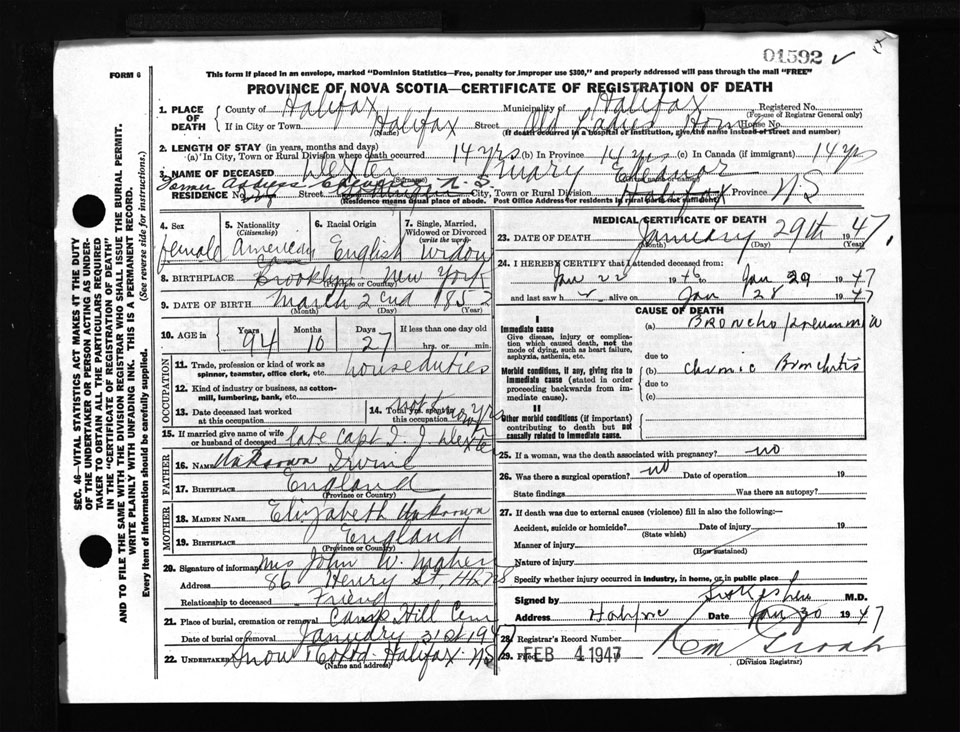 01592 ✓
FORM 6
This form if placed in an envelope, marked "Dominion Statistics—Free, penalty for improper use $300," and properly addressed will pass through the mail "FREE"
PROVINCE OF NOVA SCOTIA—CERTIFICATE OF REGISTRATION OF DEATH
SEC. 46—VITAL STATISTICS ACT MAKES IT THE DUTY
OF THE UNDERTAKER OR PERSON ACTING AS UNDER-
TAKER TO OBTAIN ALL THE PARTICULARS REQUIRED
IN THE "CERTIFICATE OF REGISTRATION OF DEATH"
AND TO FILE THE SAME WITH THE DIVISION REGISTRAR WHO SHALL ISSUE THE BURIAL PERMIT.
WRITE PLAINLY WITH UNFADING INK. THIS IS A PERMANENT RECORD.
Every item of Information should be carefully supplied. (See reverse side for instructions.)
1. PLACE OF DEATH
County of Halifax Municipality of Halifax Registered No.
(For use of Registrar General only)
If in City or Town Halifax Street Old Ladies Home House No.
(Name) (If death occurred in a hospital or institution, give the name instead of street and number)
2. LENGTH OF STAY (in years, months and days)
(a) In City, Town or Rural Division where death occurred 14 yrs (b) In Province 14 yrs (c) In Canada (if immigrant) 14 yrs
3. NAME OF DECEASED Dexter Mary Eleanor
Former Address
RESIDENCE No. City, Town or Rural Division Halifax Province N S
(Residence means usual place of abode. Post Office Address for residents in rural parts not sufficient)
4. Sex
female
5. Nationality
(Citizenship)
American
6. Racial Origin
English
7. Single, Married, Widowed or Divorced
(write the word)
Widow
8. BIRTHPLACE Brooklyn New York
(Province or Country)
9. DATE OF BIRTH March 2nd 1852
(Month) (Day) (Year)
10. AGE in Years Months Days If less than one day old
94 10 27 hrs. or min.
OCCUPATION
11. Trade, profession or kind of work as spinner, teamster, office clerk, etc. houseduties
12. Kind of industry or business, as cotton-mill, lumbering, bank, etc.
13. Date deceased last worked at this occupation
14. Total yrs. spent in this occupation
15. If married give name of wife or husband of deceased late Capt I. J Dexter
FATHER
16. NAME Unknown Irvine
17. BIRTHPLACE England
(Province or Country)
MOTHER
18. MAIDEN NAME Elizabeth Unknown
19. BIRTHPLACE England
(Province or Country)
20. Signature of informant Mrs John W. Maher
Address 86 Henry St,
Relationship to deceased Friend
21. Place of burial, cremation or removal Camp Hill Cem
Date of burial or removal January 31st 1947
22. Undertaker Snow & Co Ltd Halifax NS
(Name and address)
MEDICAL CERTIFICATE OF DEATH
23. DATE OF DEATH January 29th 1947,
(Month) (Day) (Year)
24. I HEREBY CERTIFY that I attended deceased from:
Jan 22 1946 to Jan 29 1947
and last saw h r alive on Jan 28 1947
CAUSE OF DEATH
I
Immediate cause
Give disease, injury or complication which caused death, not the mode of dying, such as heart failure, asphyxia, asthenia, etc.
(a) Broncho pneumonia
due to
Morbid conditions, if any, giving rise to immediate cause (stated in order proceeding backwards from immediate cause).
(b) Chronic Bronchitis
due to
(c)
II
Other morbid conditions (if important) contributing to death but not causally related to immediate cause.
25. If a woman, was the death associated with pregnancy? no
26. Was there a surgical operation? no Date of operation 19
State findings Was there an autopsy?
27. If death was due to external causes (violence) fill in also the following:—
Accident, suicide or homicide? Date of injury 19
(State which)
Manner of injury
(How sustained)
Nature of injury
Specify whether injury occurred in industry, in home, or in public place
Signed by M.D.
Address Halifax Date Jan 30 1947
28. Registrar's Record Number
29. Filed FEB 4 1947
(Division Registrar)